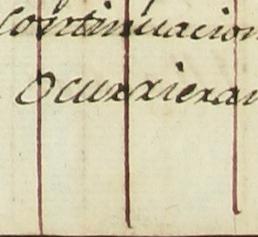 continuacion
ocurrieran